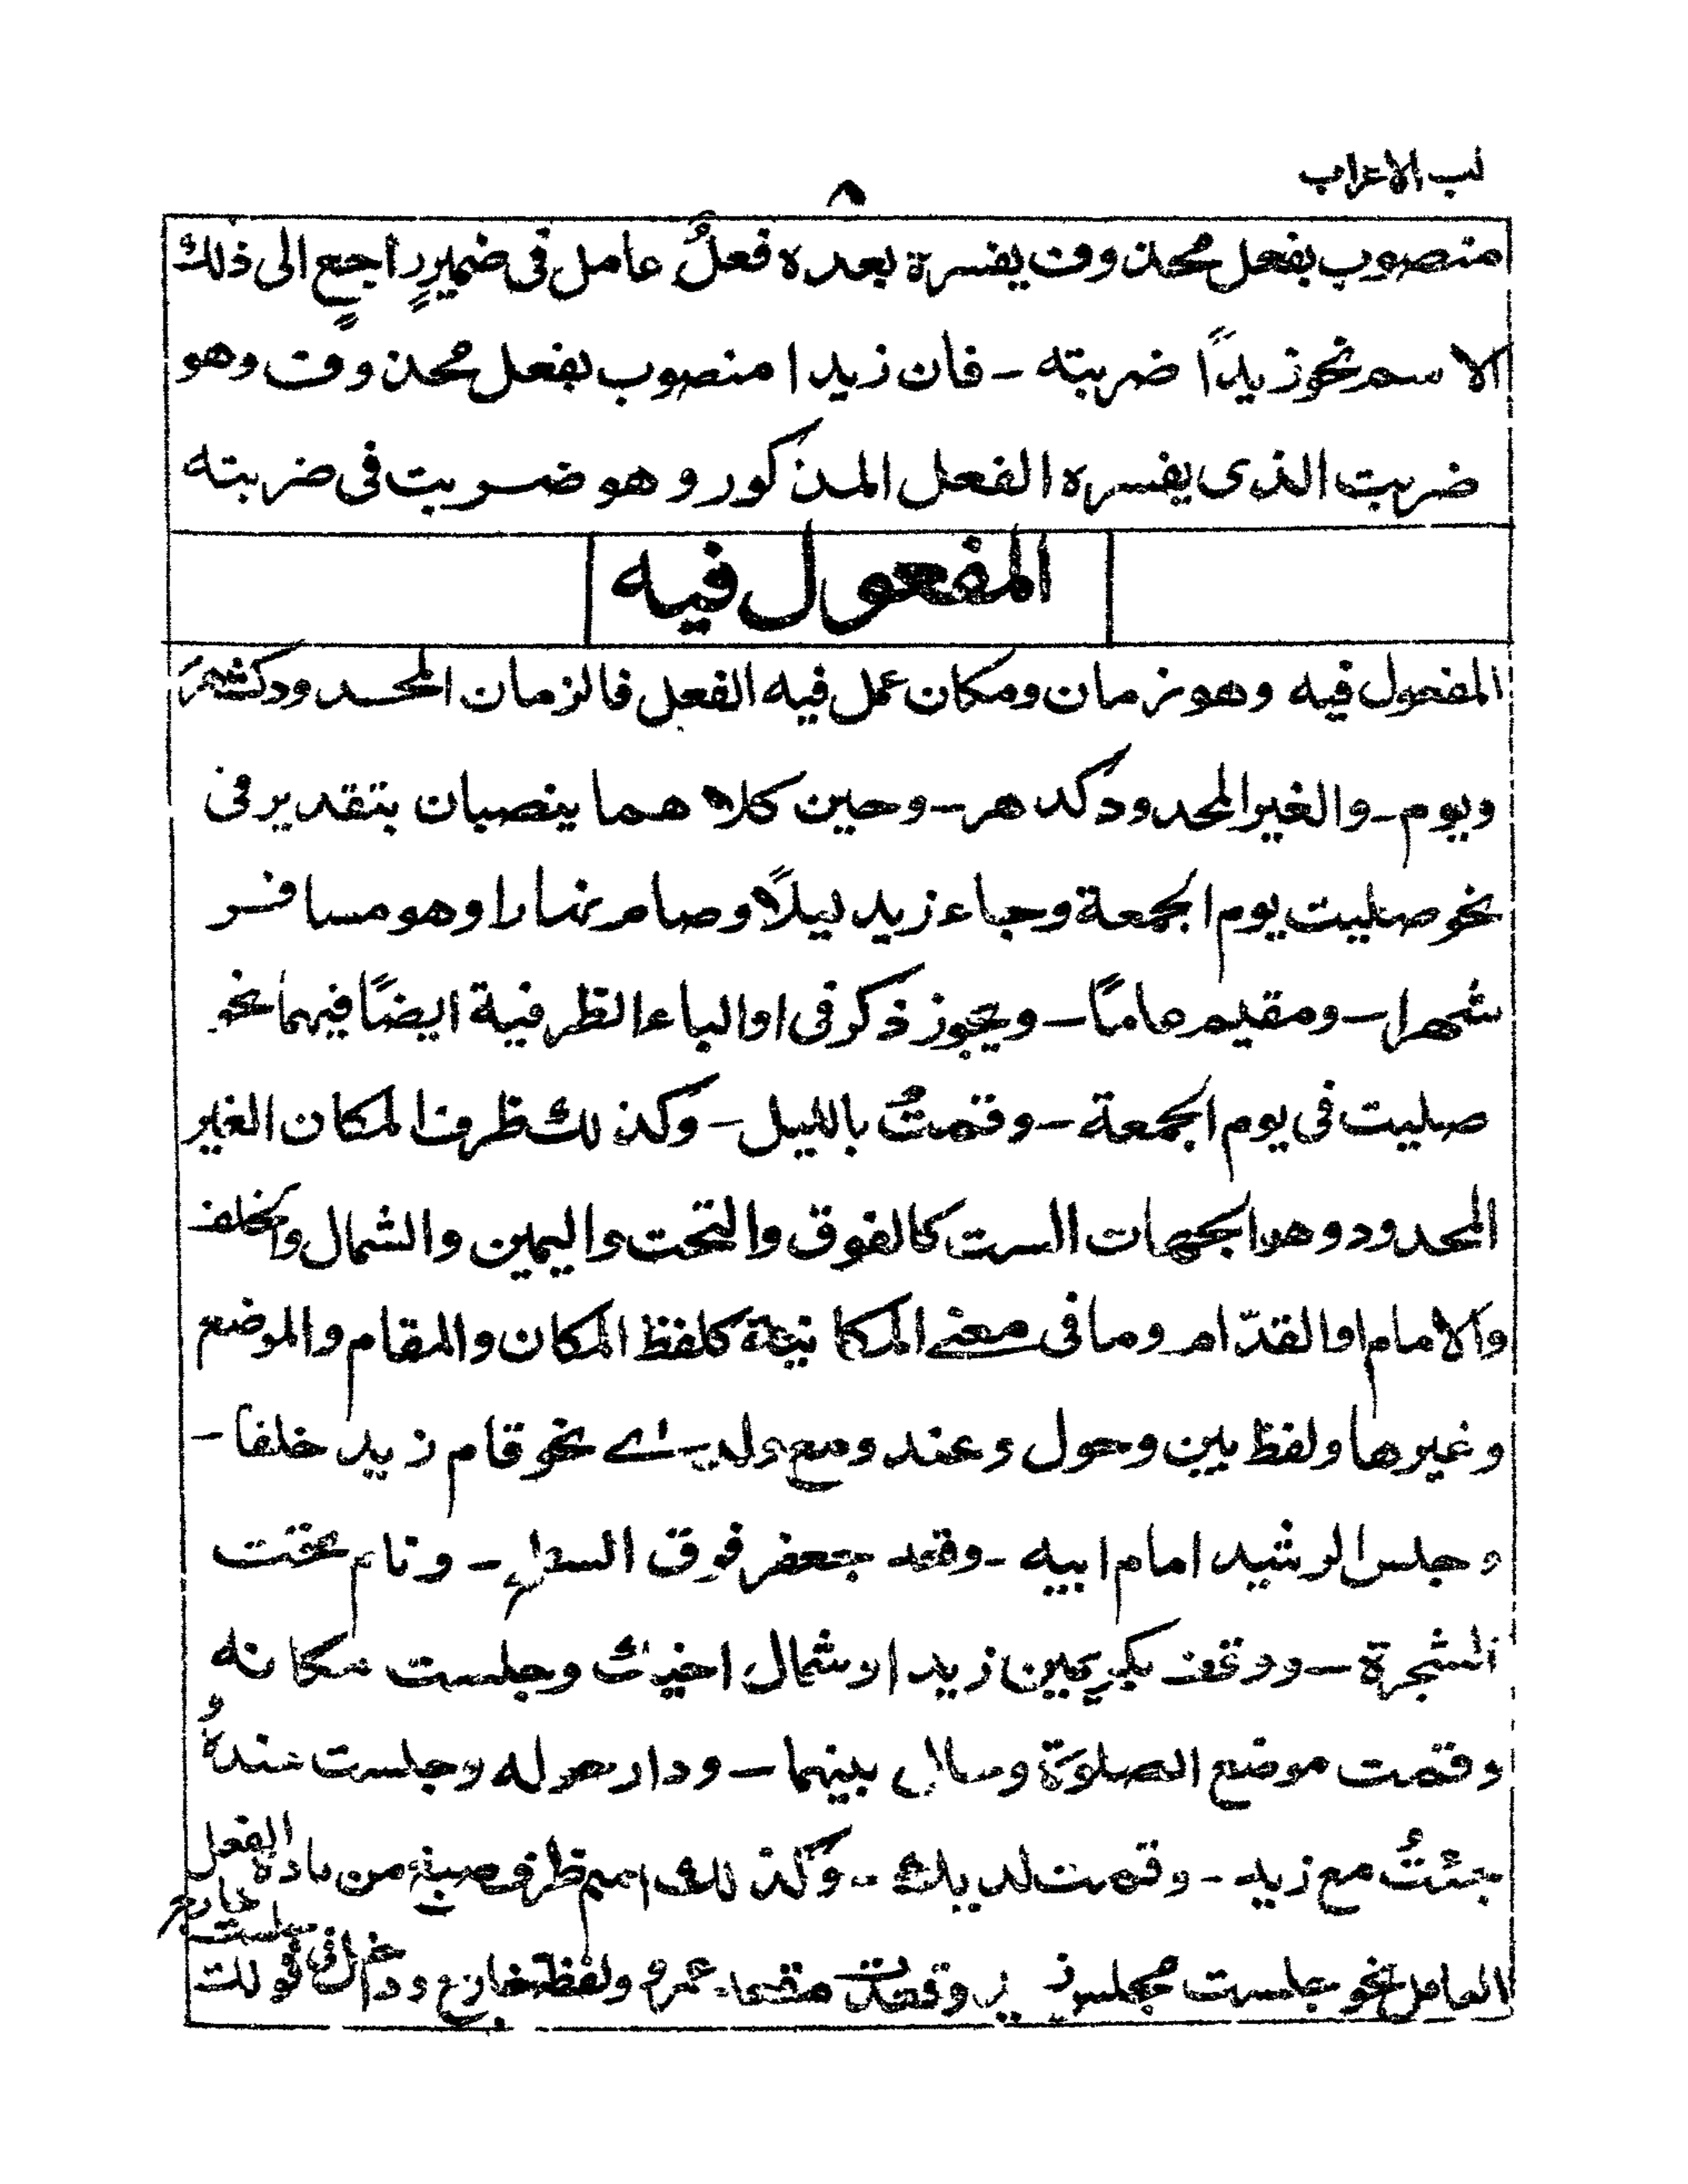 لب الاعراب
٨
منصوب بفعل محذوف يفسرة بعده فعلٌ عامل فى ضميرٍ راجعٍ الى ذلك
الاسم نحو زيدًا ضربته - فان زيدا منصوب بفعل محذوف وهو
ضربت الذى يفسره الفعل المذكور وهو ضربت فى ضربته
المفعول فيه
المفعول فيه وهو زمان ومكان عمل فيه الفعل فالزمان المحدود كشهر
ويوم - والغير المحدود كدهر - وحين كلاهما ينصبان بتقدير فى
نحو صليت يوم الجمعة وجاء زيد ليلًا وصام نهارا وهو مسافر
شهرا - ومقيم عامًا - ويجوز ذكر فى او الباء الظرفية ايضًا فيهما نحو
صليت فى يوم الجمعة - وقمتُ بالليل - وكذلك ظرف المكان الغير
المحدود وهو الجهات الست كالفوق والتحت واليمين والشمال والخلف
والامام او القدّام وما فى معنے المكانية كلفظ المكان والمقام والموضع
وغيرها ولفظ بين وحول وعند ومع ولدے نحو قام زيد خلفا -
وجلس الرشيد امام ابيه - وقعد جعفر فوق السطح - ونام تحت
الشجرة - ووقف بكر يمين زيد او شمال اخيك وجلست مكانه
وقمت موضع الصلوة بينهما - ودار حوله وجلست عندهُ
جئتُ مع زيد - وقمت لديك - وكذلك اسم ظرف من مادة الفعل
العامل نحو جلست مجلس وقعدت مقعد عمرو ولفظ خارج وداخل فى قولك
جلست خارج